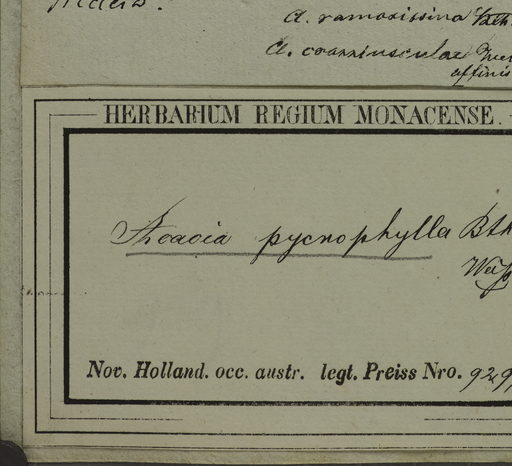 A. ramosissima Bth.
A. coarctiusculae
affinis
HERBARIUM REGIUM MONACENSE.
Acacia pycnophylla Bth
Nov. Holland. occ. austr. legt. Preiss Nro. 929